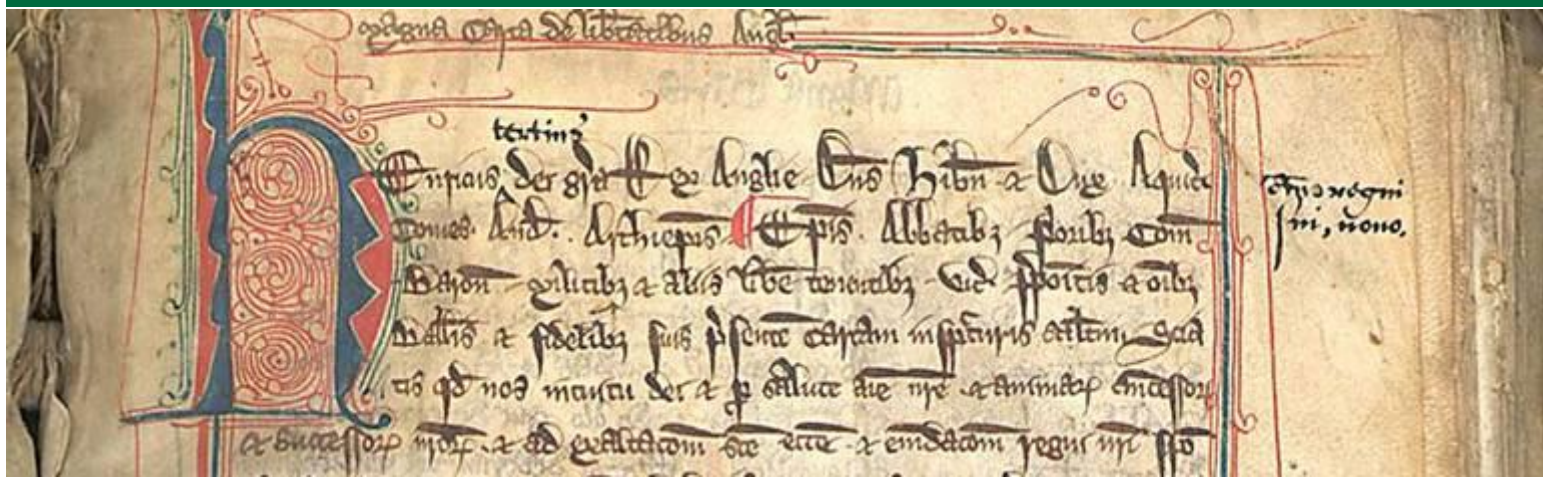 Magna Carta de lib̄tatibus Angl̄.
tertius
Enricus dei gr̄a Rex Anglie Dn̄s Hib̄n & Dux Aquit̄
Comes And̄. Archiep̄is Ep̄is. Abbatibȝ P̄oribȝ Com̄
Baron̄ militibȝ & aliis lib̄e tenentibȝ Vic̄ p̄poitis & oībȝ
Ball̄is & fidelibȝ suis p̄sente cartam insp̄turis salt̄m Scia
tis qd̄ nos intuitu dei & p̄ salute aīe nr̄e & animaꝝ ancessoꝝ
& successoꝝ nr̄oꝝ & ad exaltac̄om sc̄e ecc̄e & emdac̄om regni nr̄i spo
regni
sui, nono.